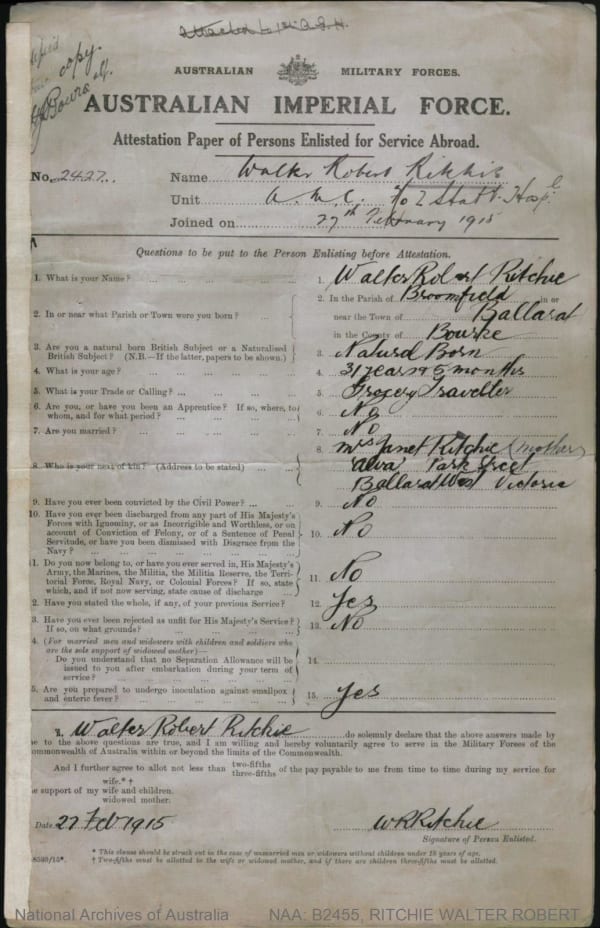 Attached to 1st A.G.H.
copy.
AUSTRALIAN MILITARY FORCES.
AUSTRALIAN IMPERIAL FORCE.
Attestation Paper of Persons Enlisted for Service Abroad.
No. 2427. Name Walter Robert Ritchie
Unit A.M.C. No 2 Statt. Hosp
Joined on 27th February 1915
Questions to be put to the Person Enlisting before Attestation.
1. What is your Name? ... 1. Walter Robert Ritchie
2. In or near what Parish or Town were you born? ... 2. In the Parish of Broomfield in or
near the Town of Ballarat
in the County of Bourke
3. Are you a natural born British Subject or a Naturalised
British Subject? (N.B.—If the latter, papers to be shown.) 3. Natural Born
4. What is your age? ... 4. 31 years 5 months
5. What is your Trade or Calling? ... 5. Grocery Traveller
6. Are you, or have you been an Apprentice? If so, where, to
whom, and for what period? ... 6. No
7. Are you married? ... 7. No
8. Who is your next of kin? (Address to be stated) ... 8. Mrs Janet Ritchie (mother)
"Alva" Park Street
Ballarat West Victoria
9. Have you ever been convicted by the Civil Power? ... 9. No
10. Have you ever been discharged from any part of His Majesty's
Forces with Ignominy, or as Incorrigible and Worthless, or on
account of Conviction of Felony, or of a Sentence of Penal
Servitude, or have you been dismissed with Disgrace from the
Navy? ... 10. No
1. Do you now belong to, or have you ever served in, His Majesty's
Army, the Marines, the Militia, the Militia Reserve, the Terri-
torial Force, Royal Navy, or Colonial Forces? If so, state
which, and if not now serving, state cause of discharge 11. No
2. Have you stated the whole, if any, of your previous Service? 12. Yes
3. Have you ever been rejected as unfit for His Majesty's Service?
If so, on what grounds? ... 13. No
4. (For married men and widowers with children and soldiers who
are the sole support of widowed mother)—
Do you understand that no Separation Allowance will be
issued to you after embarkation during your term of
service? ... 14.
5. Are you prepared to undergo inoculation against smallpox
and enteric fever? ... 15. Yes
I, Walter Robert Ritchie do solemnly declare that the above answers made by
me to the above questions are true, and I am willing and hereby voluntarily agree to serve in the Military Forces of the
Commonwealth of Australia within or beyond the limits of the Commonwealth.
And I further agree to allot not less than two-fifths three-fifths of the pay payable to me from time to time during my service for
wife.* †
the support of my wife and children.
widowed mother.
Date 27 Feb 1915 WRRitchie
Signature of Person Enlisted.
* This clause should be struck out in the case of unmarried men or widowers without children under 18 years of age.
† Two-fifths must be allotted to the wife or widowed mother, and if there are children three-fifths must be allotted.
National Archives of Australia NAA: B2455, RITCHIE WALTER ROBERT